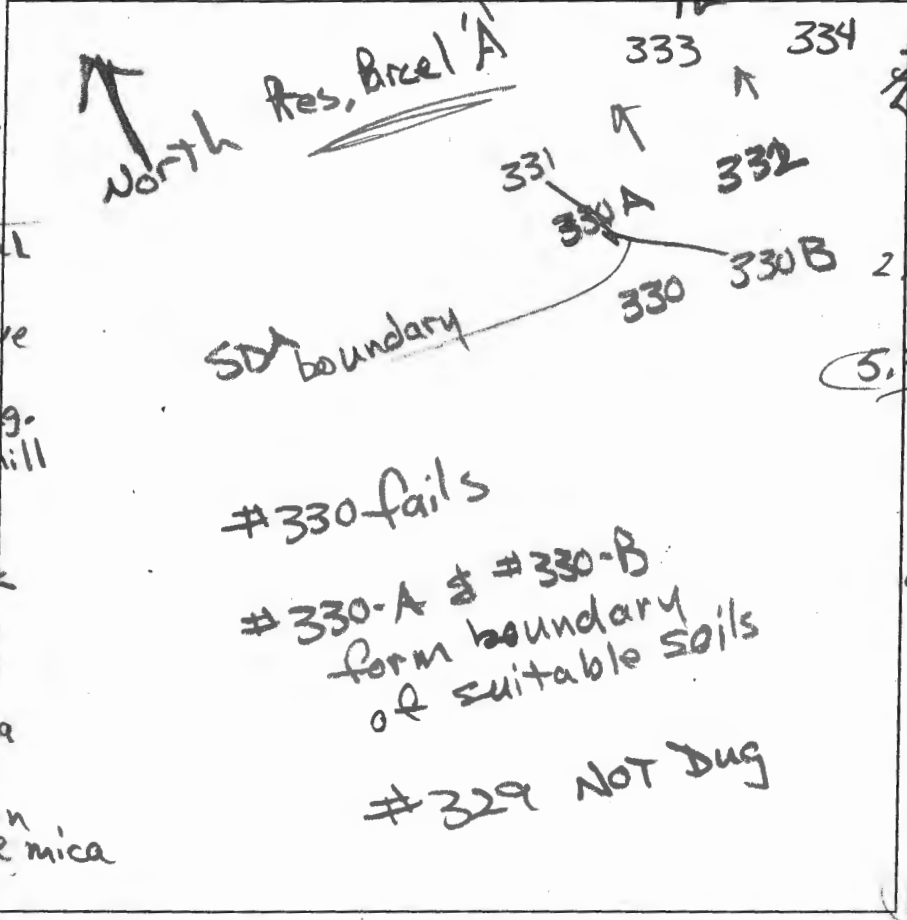 333 334
Res, Parcel 'A'
North
331
332
330A
330B
2
330
SDA boundary
5.
#330 fails
#330-A & #330-B
form boundary
of suitable soils
#329 NOT Dug
mica